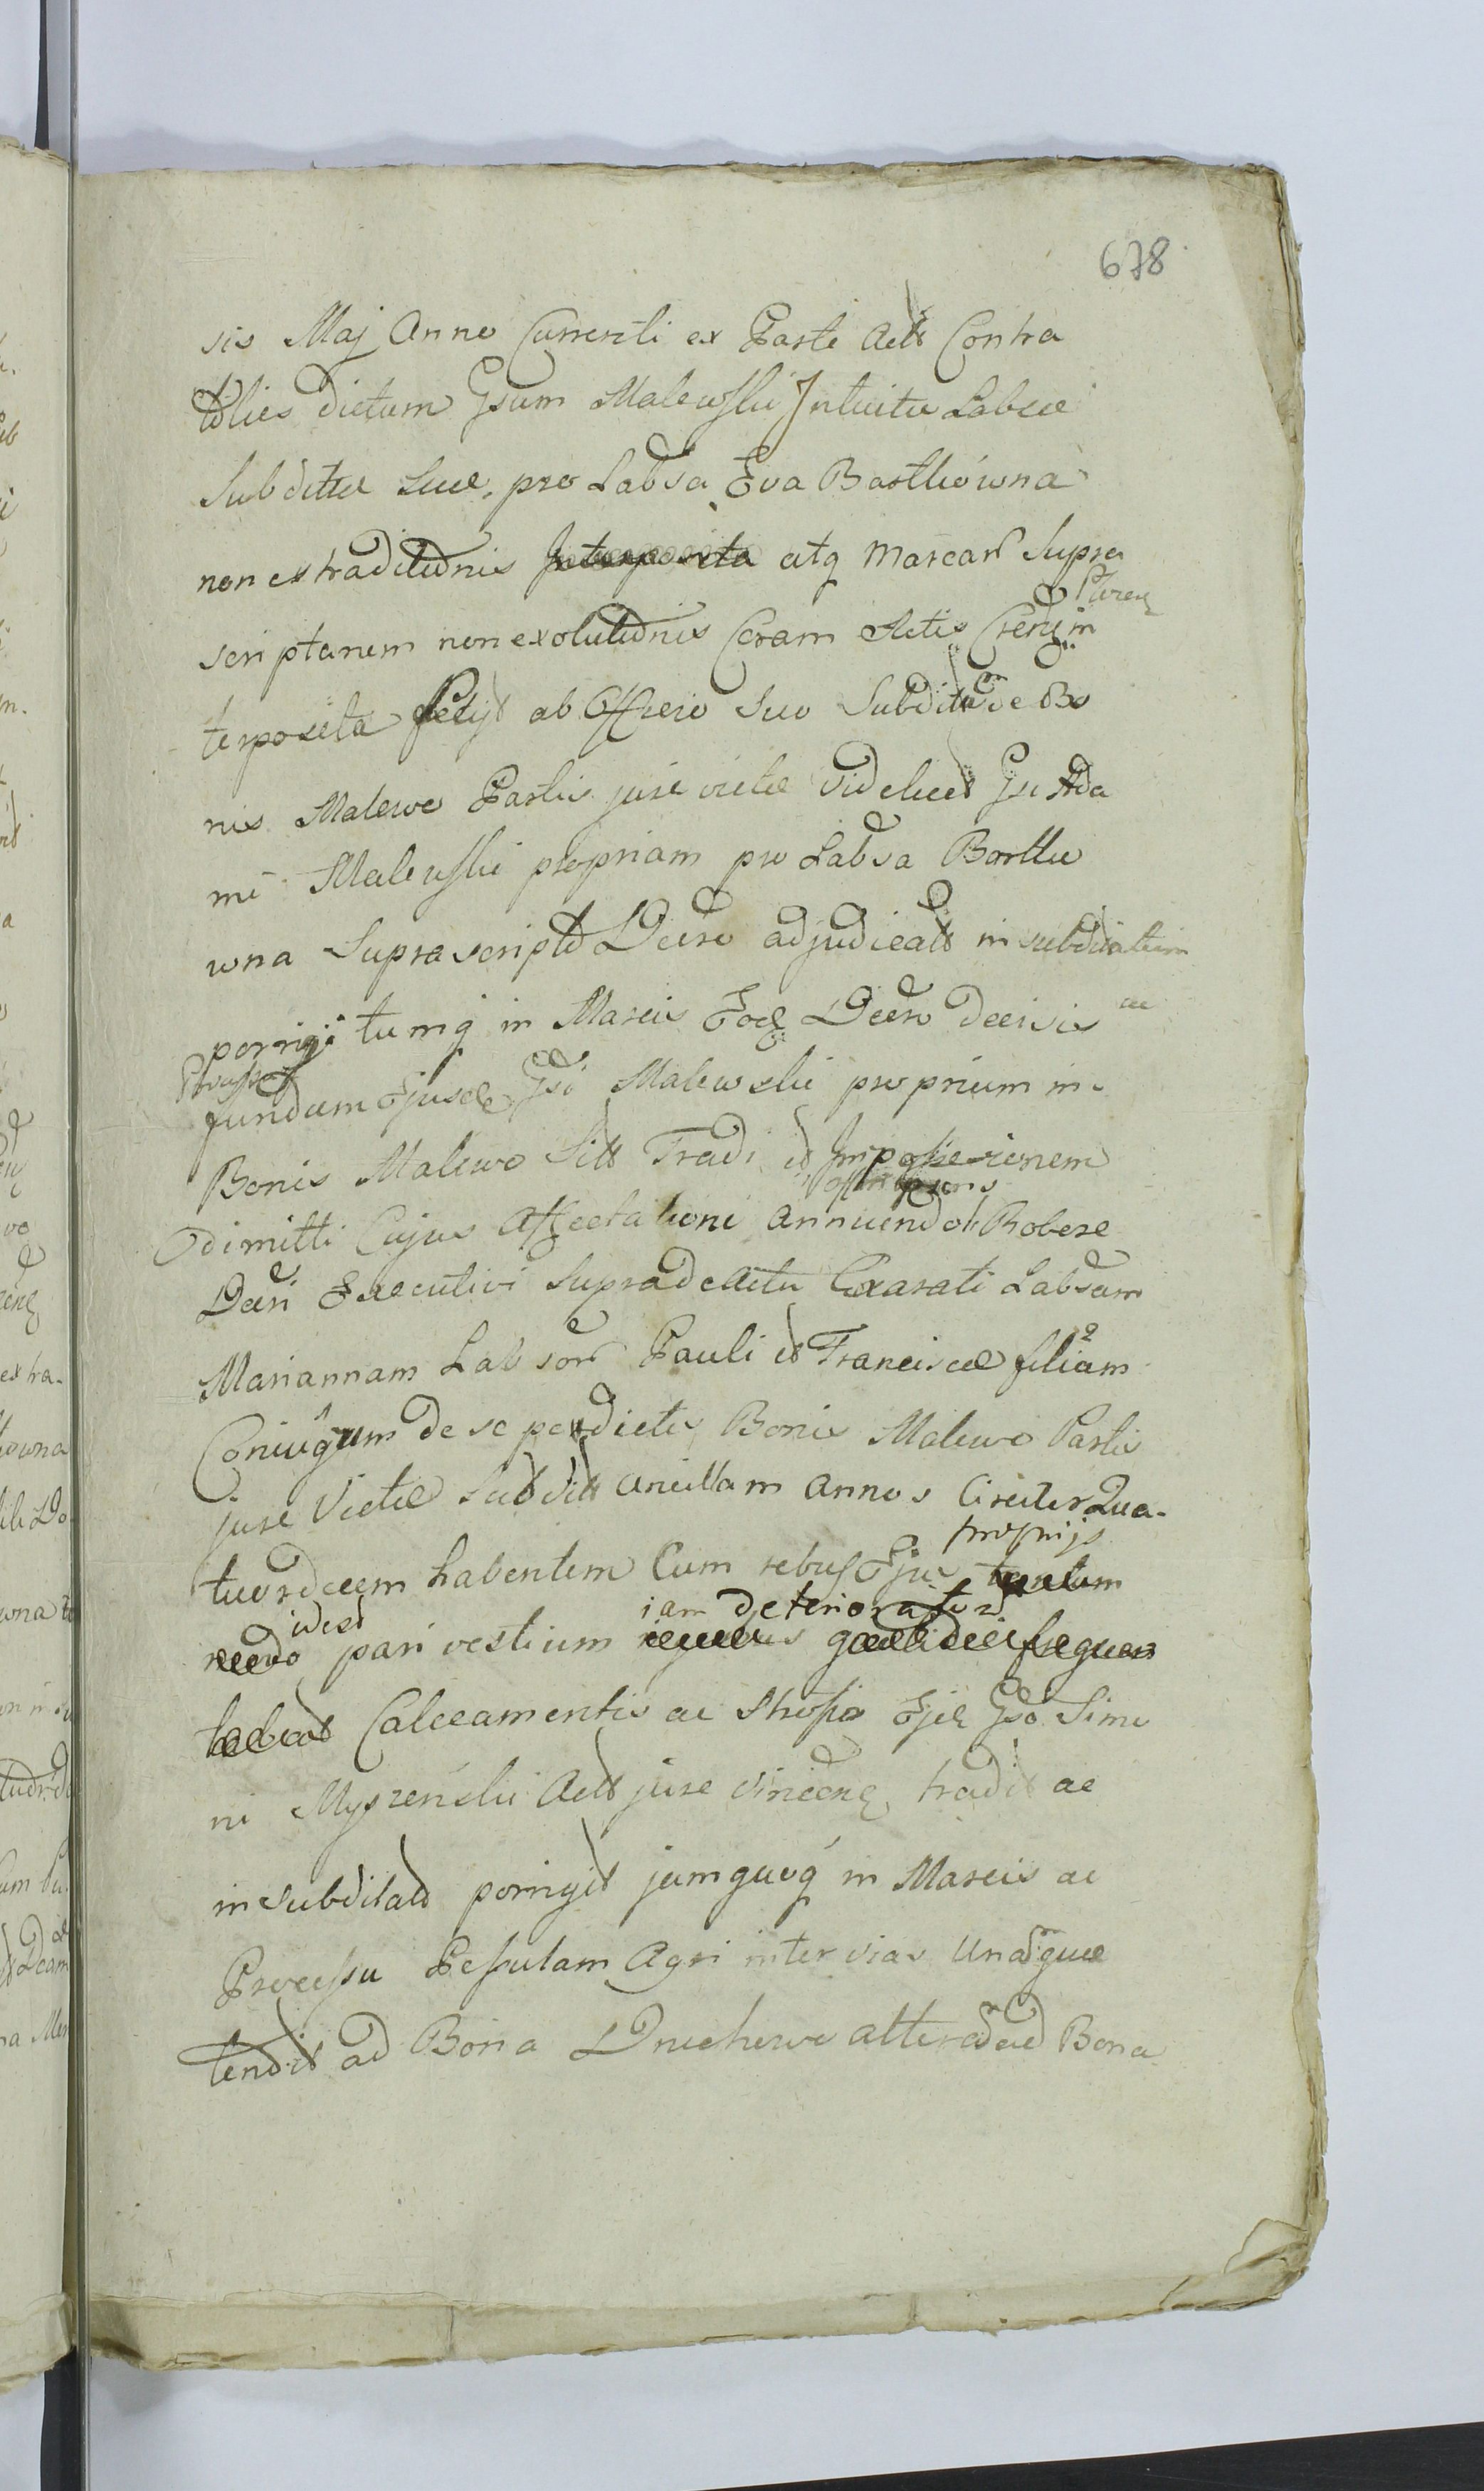 678
sis Maj Anno Currenti ex Parte Actt Contra
tolies dictum Gsum Malewski Intuitu Labsae
Subdittae Suae, pro Labsa Eva Bartkówna
non extraditionis atq Marcar Supra
scriptarum non exolutionis Coram Actis Cren in
terposita petijt ab Officio Suo Subdittam de Bo
nis Malewo Partis jure victae Videlicet Gsi Ada
mi Malewski propriam pro Labsa Bartko
wna Suprascripto Decro adjudicatt in subditatum
porrigi tumq in Marcis Eod Decro decisis ac
fundum Ejusde Gsi Malewski proprium in
Bonis Malewo Sitt Tradi et
dimitti Cujus Affectationi annuendo Robere
Decri Executivi Supra de actu Exarati Labsam
Mariannam Labsor Pauli et Franciscae filiam
Coniugum de se perdictis Bonis Malewo Partis
jure Victae Subditt ancillam annos Circiter Qua-
proprijs
tuordecem habentem Cum rebus Ejus
idest iam deteriorator
pari vestium
Calceamentis ac Gsd Simo
ni Myszenski Actt jure Vincen tradit ac
in Subditatt porrigit jamquoq in Marcis ac
Processu Pessulam Agri inter vias Unam quae
tendit ad Bona Druchowo alteram ad Bona